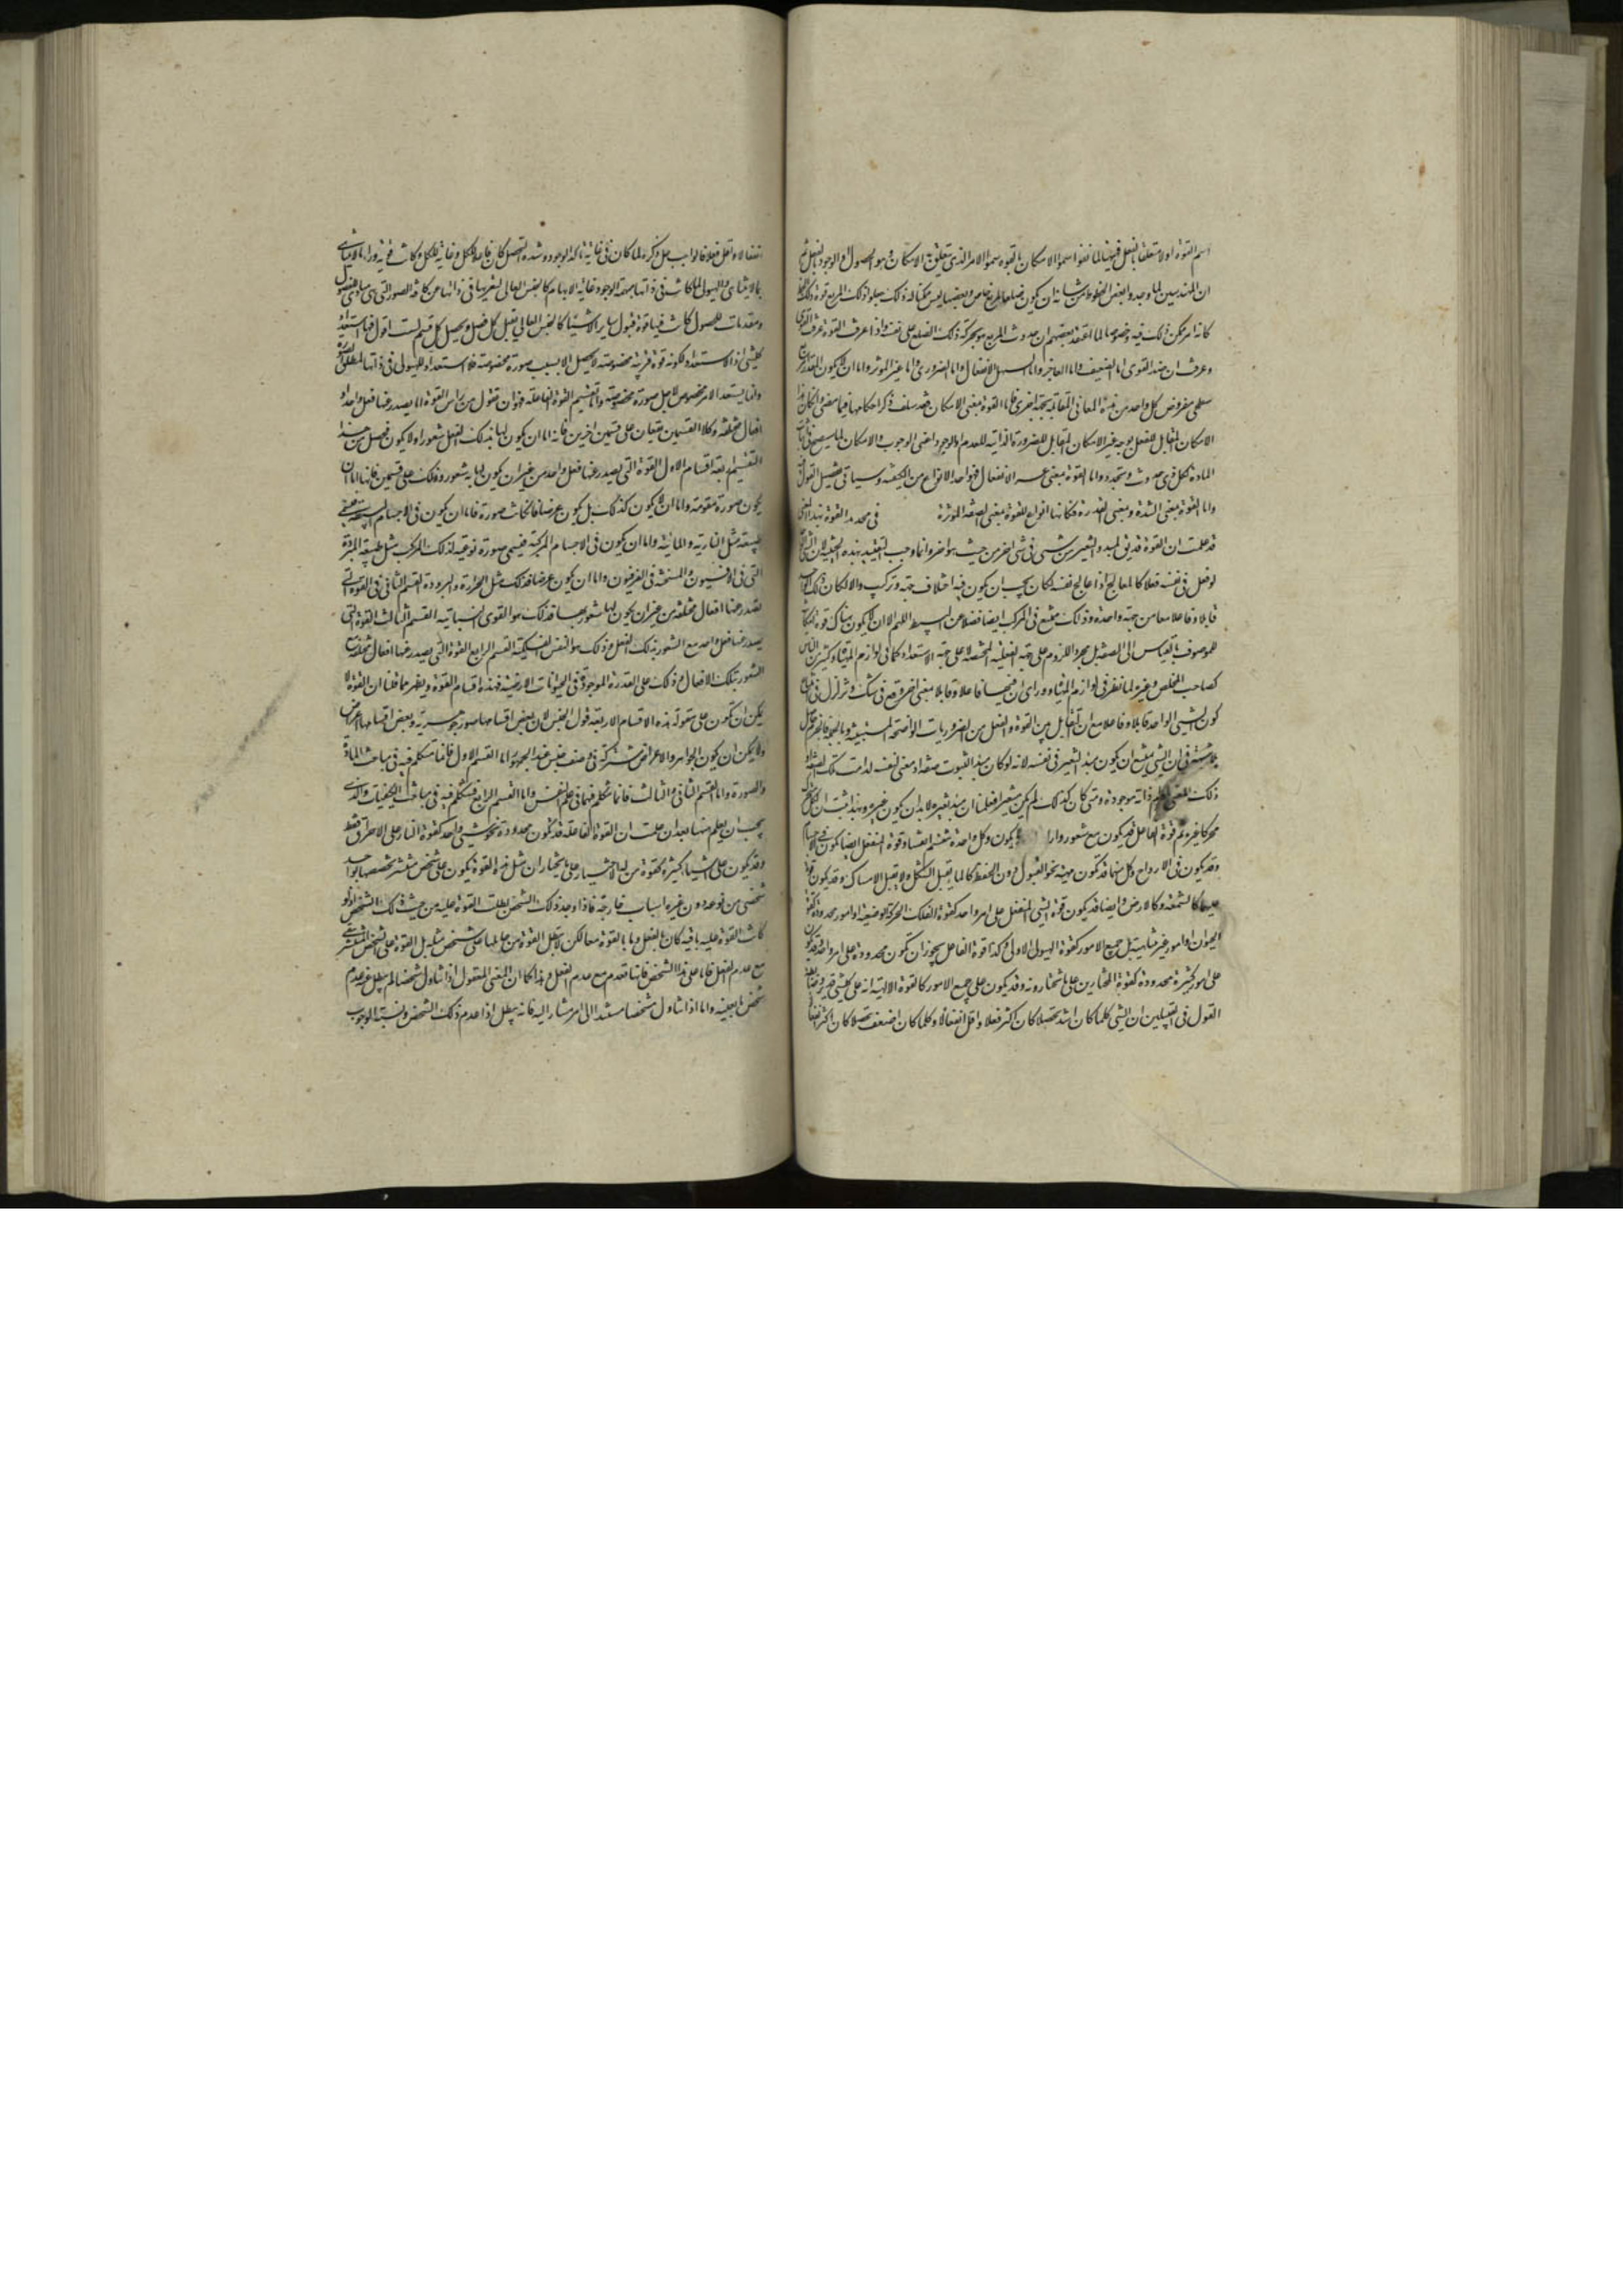 اسم القوة اولا متعلقا بالفعل فههنا لما نفوا سموا الامكان بالقوة سموا الامر الذى يتعلق به الامكان و هو الحصول و الوجود بالفعل ثم
ان المهندسين لما وجدوا بعض الخطوط من شانه ان يكون ضلعا لمربع خاص و بعضها ليس ممكنا له ذلك جعلوا ذلك المربع قوة ذلك الخط
كانه امر ممكن ذلك فيه و خصوصا لما اعتقد بعضهم ان حدوث المربع هو بحركة ذلك الضلع على نفسه و اذا عرفت القوة عرفت القوى
و عرفت ان ضد القوى اما الضعيف و اما العاجز و اما السهل الانفعال و اما الضرورى و اما غير الموثر و اما ان لا يكون المقدار
سطحى مفروض كل واحد من هذه المعانى المتقابلة بجهة اخرى فاما القوة بمعنى الامكان فقد سلف ذكر احكامها فيما مضى و
الامكان المقابل للفعل بوجه غير الامكان المقابل للضرورة الذاتية للعدم او الوجود اعنى الوجوب و الامكان
المادة لكل ذى حدوث و تجدد و اما القوة بمعنى عسر الانفعال فهو احد الانواع من الكيف و سياتى تفصيل القول
و اما القوة بمعنى الشدة و بمعنى القدرة فكانها انواع للقوة بمعنى الصفة الموثرة فى تحديد القوة بهذا المعنى
قد علمت ان القوة قد يق لمبدء التغير من شىء فى شىء اخر من حيث هو اخر و انما وجب التقييد بهذه الحيثية لان الشىء
لو فعل فى نفسه فعلا كالمعالج اذا عالج نفسه لكان يجب ان يكون فيه اختلاف جهة و تركيب و الا لكان ذلك
قابلا و فاعلا معا من جهة واحدة و ذلك ممتنع فى المركب ايضا فضلا عن البسيط اللهم الا ان لا يكون هناك قوة
للموصوف بالقياس الى الصفة بل مجرد اللزوم على جهة الفعلية المحصلة لا على جهة الاستعداد كما فى لوازم المهيات و كثير من الناس
كصاحب الملخص و غيره لما نظر فى لوازم المهيات و راى ان فيها فاعلا و قابلا بمعنى اخر وقع فى شك و تزلزل فى
كون الشىء الواحد قابلا و فاعلا مع ان تقابل بين القوة و الفعل من الضروريات الواضحة
فى ان الشىء يمتنع ان يكون مبدا التغير فى نفسه لانه لو كان مبدا لثبوت صفة او معنى لنفسه لدامت تلك الصفة
ذلك المعنى ذاته موجودة و متى كان كذلك لم يكن متغيرا فعلمنا ان مبدا تغيره لابد ان يكون غيره و بهذا ثبت ان لكل
محركا غيره ثم قوة الفاعل قد يكون مع شعور و اراد يكون و كل واحدة تنقسم اقساما و قوة المنفعل ايضا يكون فى الاجسام
و قد يكون فى الارواح و كل منهما قد يكون مهيئة نحو القبول دون الحفظ كالماء يقبل الشكل و لا يقبل الامساك و قد يكون
عليهما كالشمعة و كالارض و ايضا قد يكون قوة الشىء المنفعل على امر واحد كقوة الفلك الحركة الوضعية او امور محدودة كقوة
الحيوان او امور غير متناهية بل جميع الامور كقوة الهيولى الاولى و كذا قوة الفاعل يجوز ان تكون محدودة على امر واحد و قد يكون
على امور كثيرة محدودة كقوة المختارين على ما يختارونه و قد يكون على جميع الامور كالقوة الالهية انه على كل شىء قدير
القول فى القبيلين ان الشىء كلما كان اشد تحصلا كان اكثر فعلا و اقل انفعالا و كلما كان اضعف تحصلا كان اكثر
انفعالا و اقل فعلا فالواجب جل ذكره لما كان فى غاية تاكد الوجود و شدة التحصل كان فاعلا للكل و غاية للكل و كانت قوته وراء ما لا يتناهى
بما لا يتناهى و الهيولى لما كانت فى ذاتها مبهمة الوجود غاية الابهام كالجنس العالى لتعريها فى ذاتها عن كافة الصور التى هى مبادى الفصول
و مقدمات للحصول كانت فيها قوة قبول ساير الاشياء كالجنس العالى يقبل كل فصل و تحصيل كل قسم لست اقول فيها استعداد
كل شىء اذ الاستعداد لكونه قوة قريبة مخصوصة لا يحصل الا بسبب صورة مخصوصة فلا استعداد للهيولى فى ذاتها
و انما يستعد لامر مخصوص لاجل صورة مخصوصة و اما تقسيم القوة الفاعلة فهو ان نقول من راس القوة اما يصدر عنها فعل واحد او
افعال مختلفة و كلا القسمين يقعان على قسمين اخرين فانه اما ان يكون لها بذلك الفعل شعور او لا يكون فحصل من هذا
التقسيم اربعة اقسام الاول القوة التى يصدر عنها فعل واحد من غير ان يكون لها به شعور و ذلك على قسمين فانها اما ان
يكون صورة مقومة و اما ان لا يكون كذلك بل يكون عرضا فان كانت صورة فاما ان يكون فى الاجسام البسيطة فيسمى
طبيعة مثل النارية و المائية و اما ان يكون فى الاجسام المركبة فيسمى صورة نوعية لذلك المركب مثل طبيعة المبردة
التى فى الافيون و المسخنة فى الفرفيون و اما ان يكون عرضا فذلك مثل الحرارة و البرودة القسم الثانى هى القوة التى
تصدر عنها افعال مختلفة من غير ان يكون لها شعور بها فذلك هو القوى النباتية القسم الثالث القوة التى
يصدر عنها فعل واحد مع الشعور بذلك الفعل و ذلك هو النفس الفلكية القسم الرابع القوة التى يصدر عنها افعال مختلفة مع
الشعور بتلك الافعال و ذلك على القدرة الموجودة فى الحيوانات الارضية فهذه اقسام القوة و يظهر مما قلنا ان القوة لا
يمكن ان تكون على مقولة هذه الاقسام الاربعة قول الجنس لان بعض اقسامها صور جوهرية و بعض اقسامها اعراض
و لا يمكن ان يكون الجواهر و الاعراض مشتركة فى وصف جنسى عند الجمهور اما القسم الاول فانما نتكلم فيه فى مباحث المادة
و الصورة و اما القسم الثانى و الثالث فانما نتكلم فيهما فى علم النفس و اما القسم الرابع فنتكلم فيه فى مباحث الكيفيات و الذى
يجب ان يعلم ههنا بعد ان علمت ان القوة الفاعلة قد تكون محدودة نحو شىء واحد كقوة النار على الاحراق فقط
و قد يكون على اشياء كثيرة كقوة من له الاختيار على ما يختار ان مثل هذه القوة يكون على شخص منتشر تخصصها بواحد
شخصى من نوعه دون غيره اسباب خارجة فاذا وجد ذلك الشخص بطلت القوة عليه من حيث ذلك الشخص اذ لو
كانت القوة عليه باقية كان ما بالفعل و ما بالقوة معا لكن لا تبطل القوة من حاملها على شخص مثله بل القوة على الشخص المنتشر
مع عدم الفعل فاما على هذا الشخص فانها تعدم مع عدم الفعل و هذا كما ان المعنى المعقول اذا تناول شخصا لم يبطل مع عدم
شخص ما بعينه و اما اذا تناول شخصا مستندا الى امر مشار اليه فانه يبطل اذا عدم ذلك الشخص و نسبة الوجوب